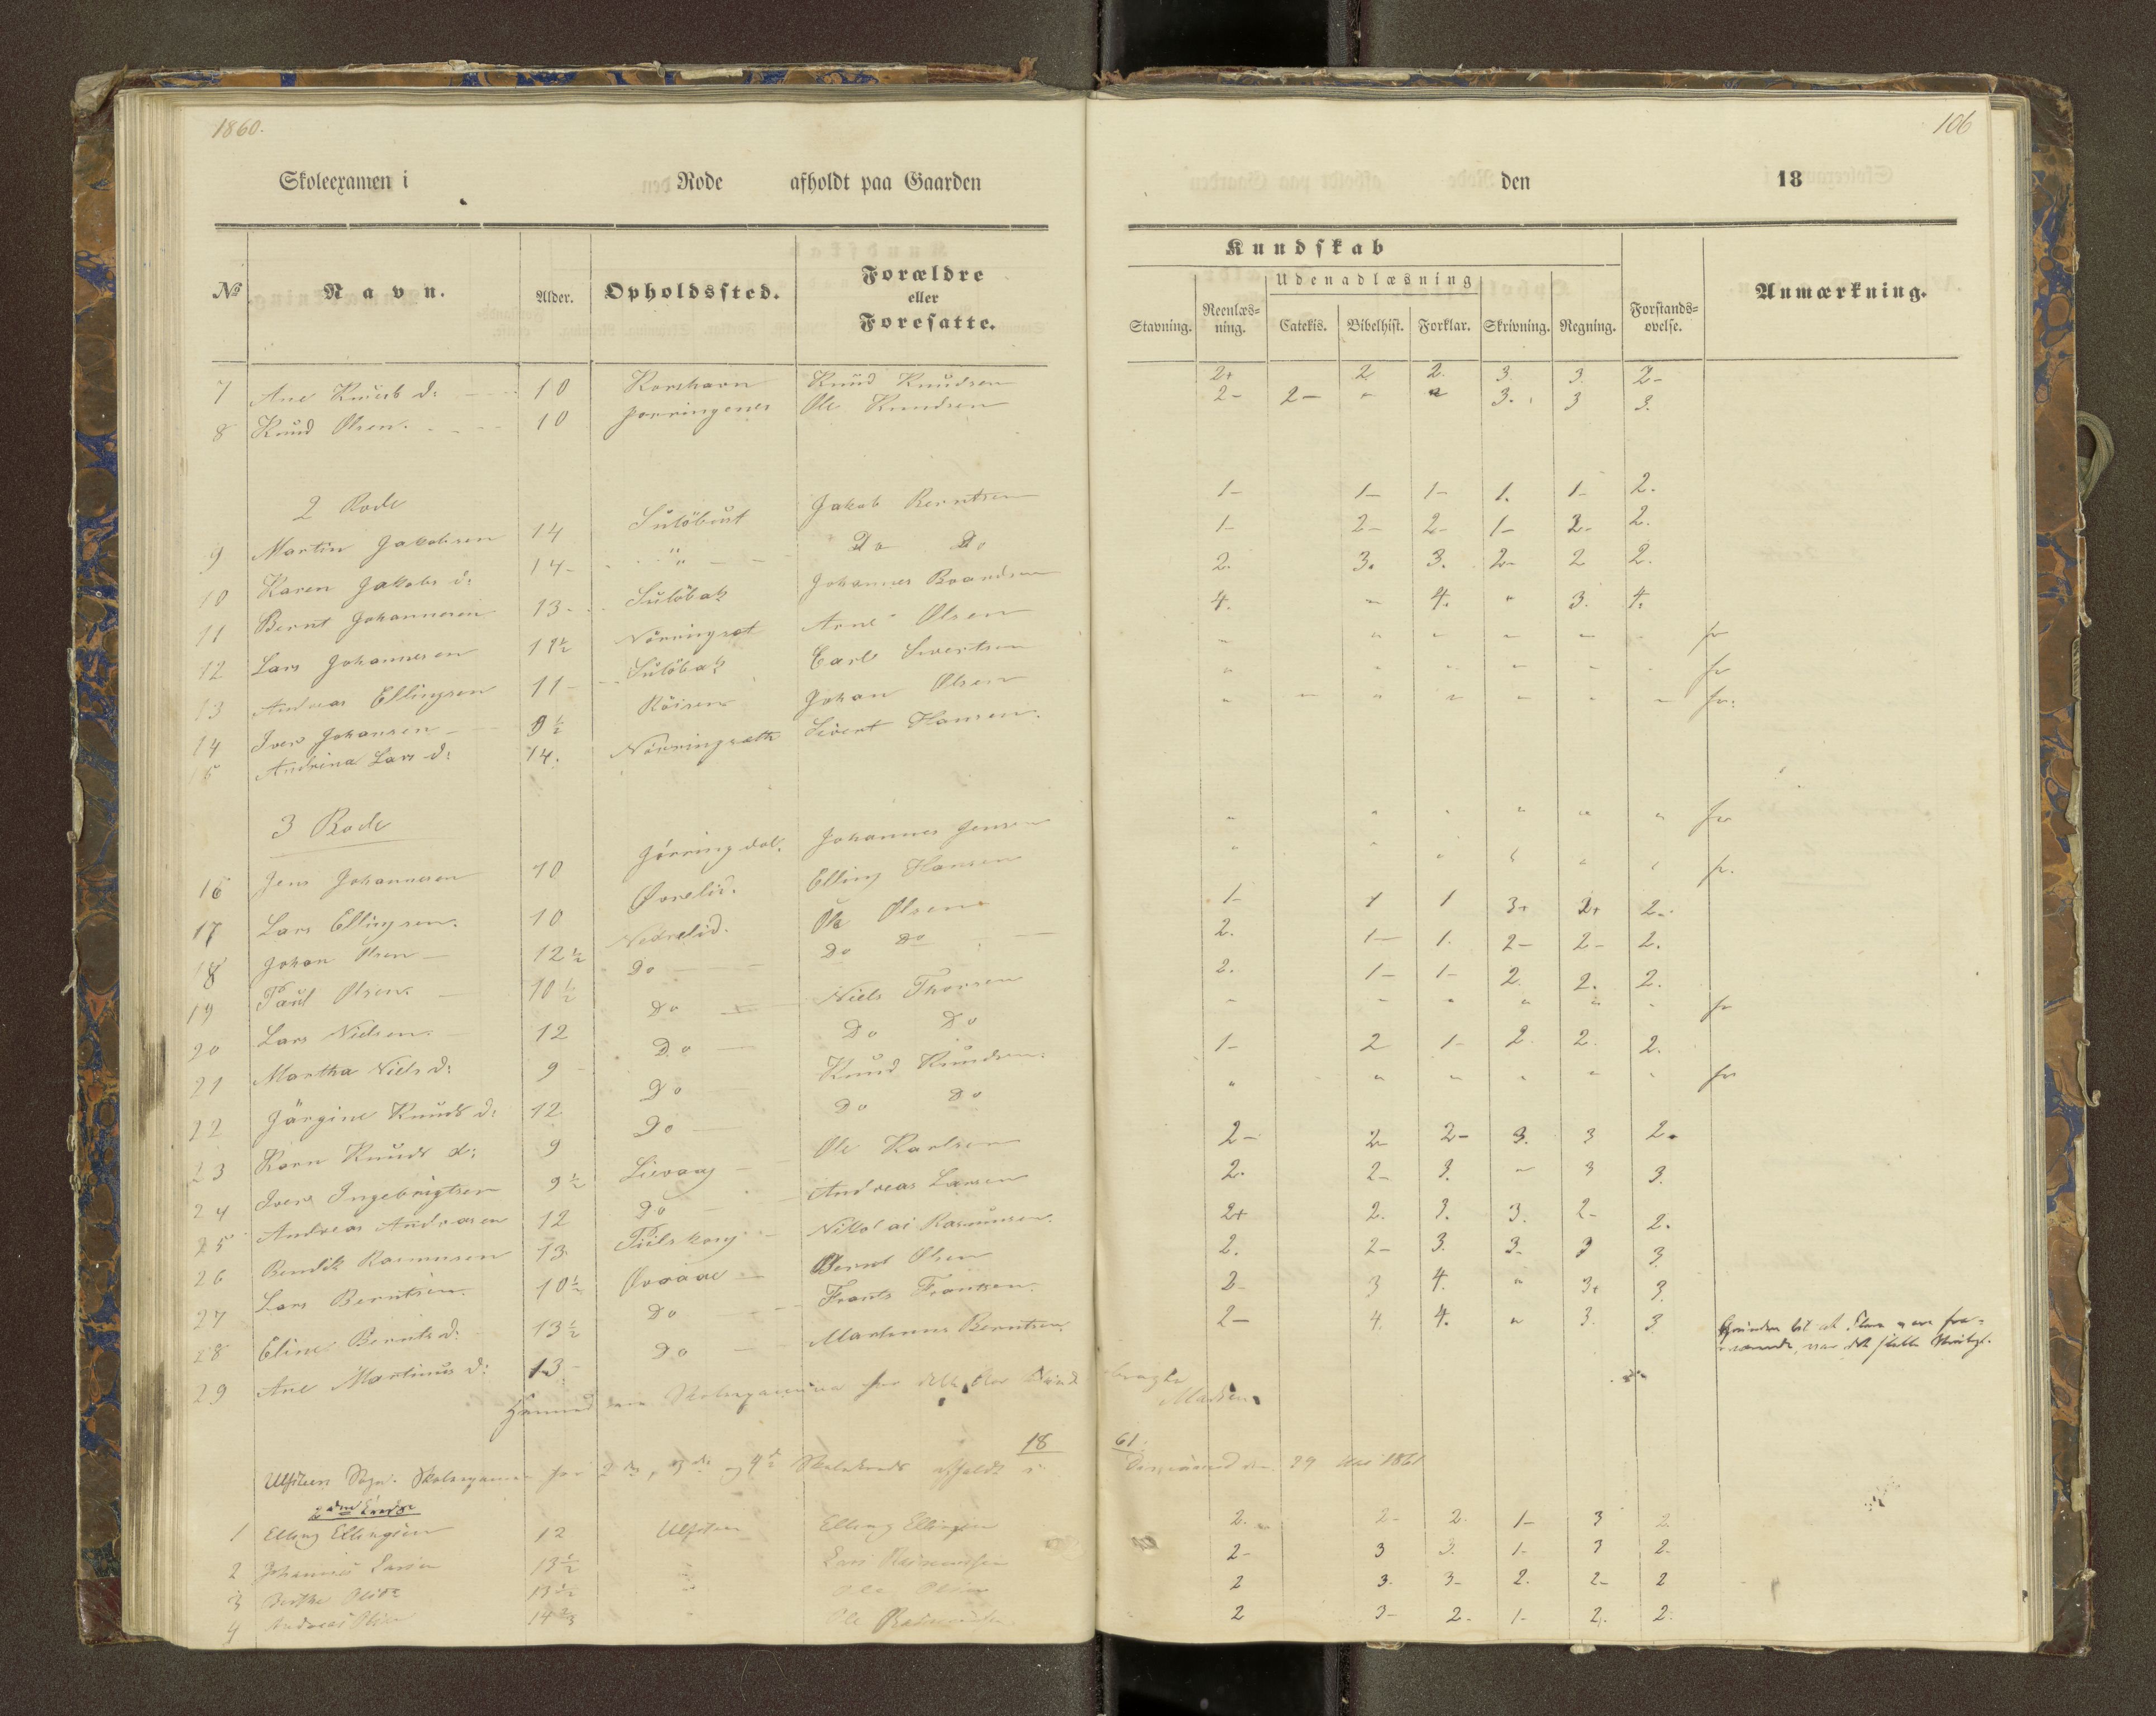 1860.
106
Skoleexamen i Rode afholdt paa Gaarden den 18
Kundskab
Udenadlæsning
№ Navn. Alder. Opholdssted. Forældre eller Foresatte. Stavning. Reenlæsning. Catekis. Bibelhist. Forklar. Skrivning. Regning. Forstandsøvelse. Anmærkning.
7 Ane Knuds d: 10 Korshavn Knud Knudsen 2+ 2 2. 3 3. 2-
8 Knud Olsen. 10 Ole Knudsen 2- 2- " " 3. 3 3.
2 Rode
9 Martin Jakobsen 14 Jakob Berntsen 1- 1- 1- 1. 1- 2.
10 Karen Jakobs d: 14- " Do Do 1- 2- 2- 1- 2- 2.
11 Bernt Johannesen 13- Sulöbak Johannes Baardsen 2. 3. 3. 2- 2 2.
12 Lars Johannesen 11½ Nörringset Arne Olsen 4. " 4. " 3. 4.
13 Andreas Ellingsen 11- Sulöbak Carl Sivertsen " " " " " " fr
14 Iver Johansen 9½ Röisen Johan Olsen " " " " " " fr
15 Andrina Lars d: 14. Nörringseth Sivert Hansen. " " " " " " " fr:
3 Rode
16 Jens Johannesen 10 Jörringdal. Johannes Jensen " " " " " " fr
17 Lars Ellingsen. 10 Øvrelid. Elling Hansen " " " " " " fr.
18 Johan Olsen 12½ Nedrelid. Ole Olsen 1- 1 1 3+ 2+ 2-
19 Paul Olsen. 10½ Do Do Do 2. 1- 1. 2- 2- 2.
20 Lars Nielsen. 12 Do Niels Thorsen 2. 1- 1- 2. 2. 2.
21 Martha Niels d: 9 Do Do Do " " " " " " fr
22 Jörgine Knuds d: 12 Do Knud Knudsen. 1- 2 1- 2. 2. 2.
23 Karn Knuds d: 9 Do Do Do " " " " " " fr
24 Iver Ingebrigtsen 9½ Lievaag Ole Karlsen 2- 2- 2- 3. 3 2.
25 Andreas Andreasen 12 Do Andreas Larsen 2. 2- 3. " 3 3.
26 Bendik Rasmusen 13 Nikolai Rasmusen. 2+ 2. 3. 3. 2- 2.
27 Lars Berntsen. 10½ Øvraae Bernt Olsen 2. 2- 3. 3- 3 3.
28 Eline Bernts d: 13½ Do Frants Frantsen. 2- 3 4. " 3+ 3.
29 Ane Martinus d: 13- Do Martinus Berntsen. 2- 4. 4. " 3. 3.
Madsen
1861.
Ulfsteen Sogn. Skoleexamen for 2den, 3die og 4de afholdt i
29 Mai 1861
1 Elling Ellingsen 12 Ulfsten Elling Ellingsen 2. 2- 2. 1- 3 2
2 Johannes Larsen 13½ " Lars Rasmussen 2- 3 3. 1- 3 2-
3 13½ " Ole Olsen 2 3- 3- 2. 2- 2
4 Andreas Olsen 14 " Ole 2 3- 2- 1- 2. 2.